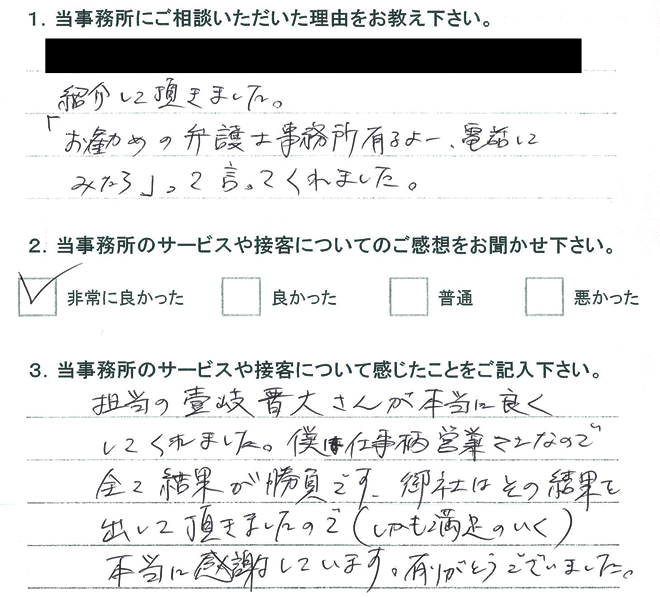 1. 当事務所にご相談いただいた理由をお教え下さい。
紹介して頂きました。
「お勧めの弁護士事務所有るよー、電話して
みたら」って言ってくれました。
2. 当事務所のサービスや接客についてのご感想をお聞かせ下さい。
非常に良かった 良かった 普通 悪かった
3. 当事務所のサービスや接客について感じたことをご記入下さい。
担当の壹岐晋大さんが本当に良く
してくれました。僕は仕事柄営業マンなので
全て結果が勝負です。御社はその結果を
出して頂きましたので(しかも満足のいく)
本当に感謝しています。有りがとうございました。